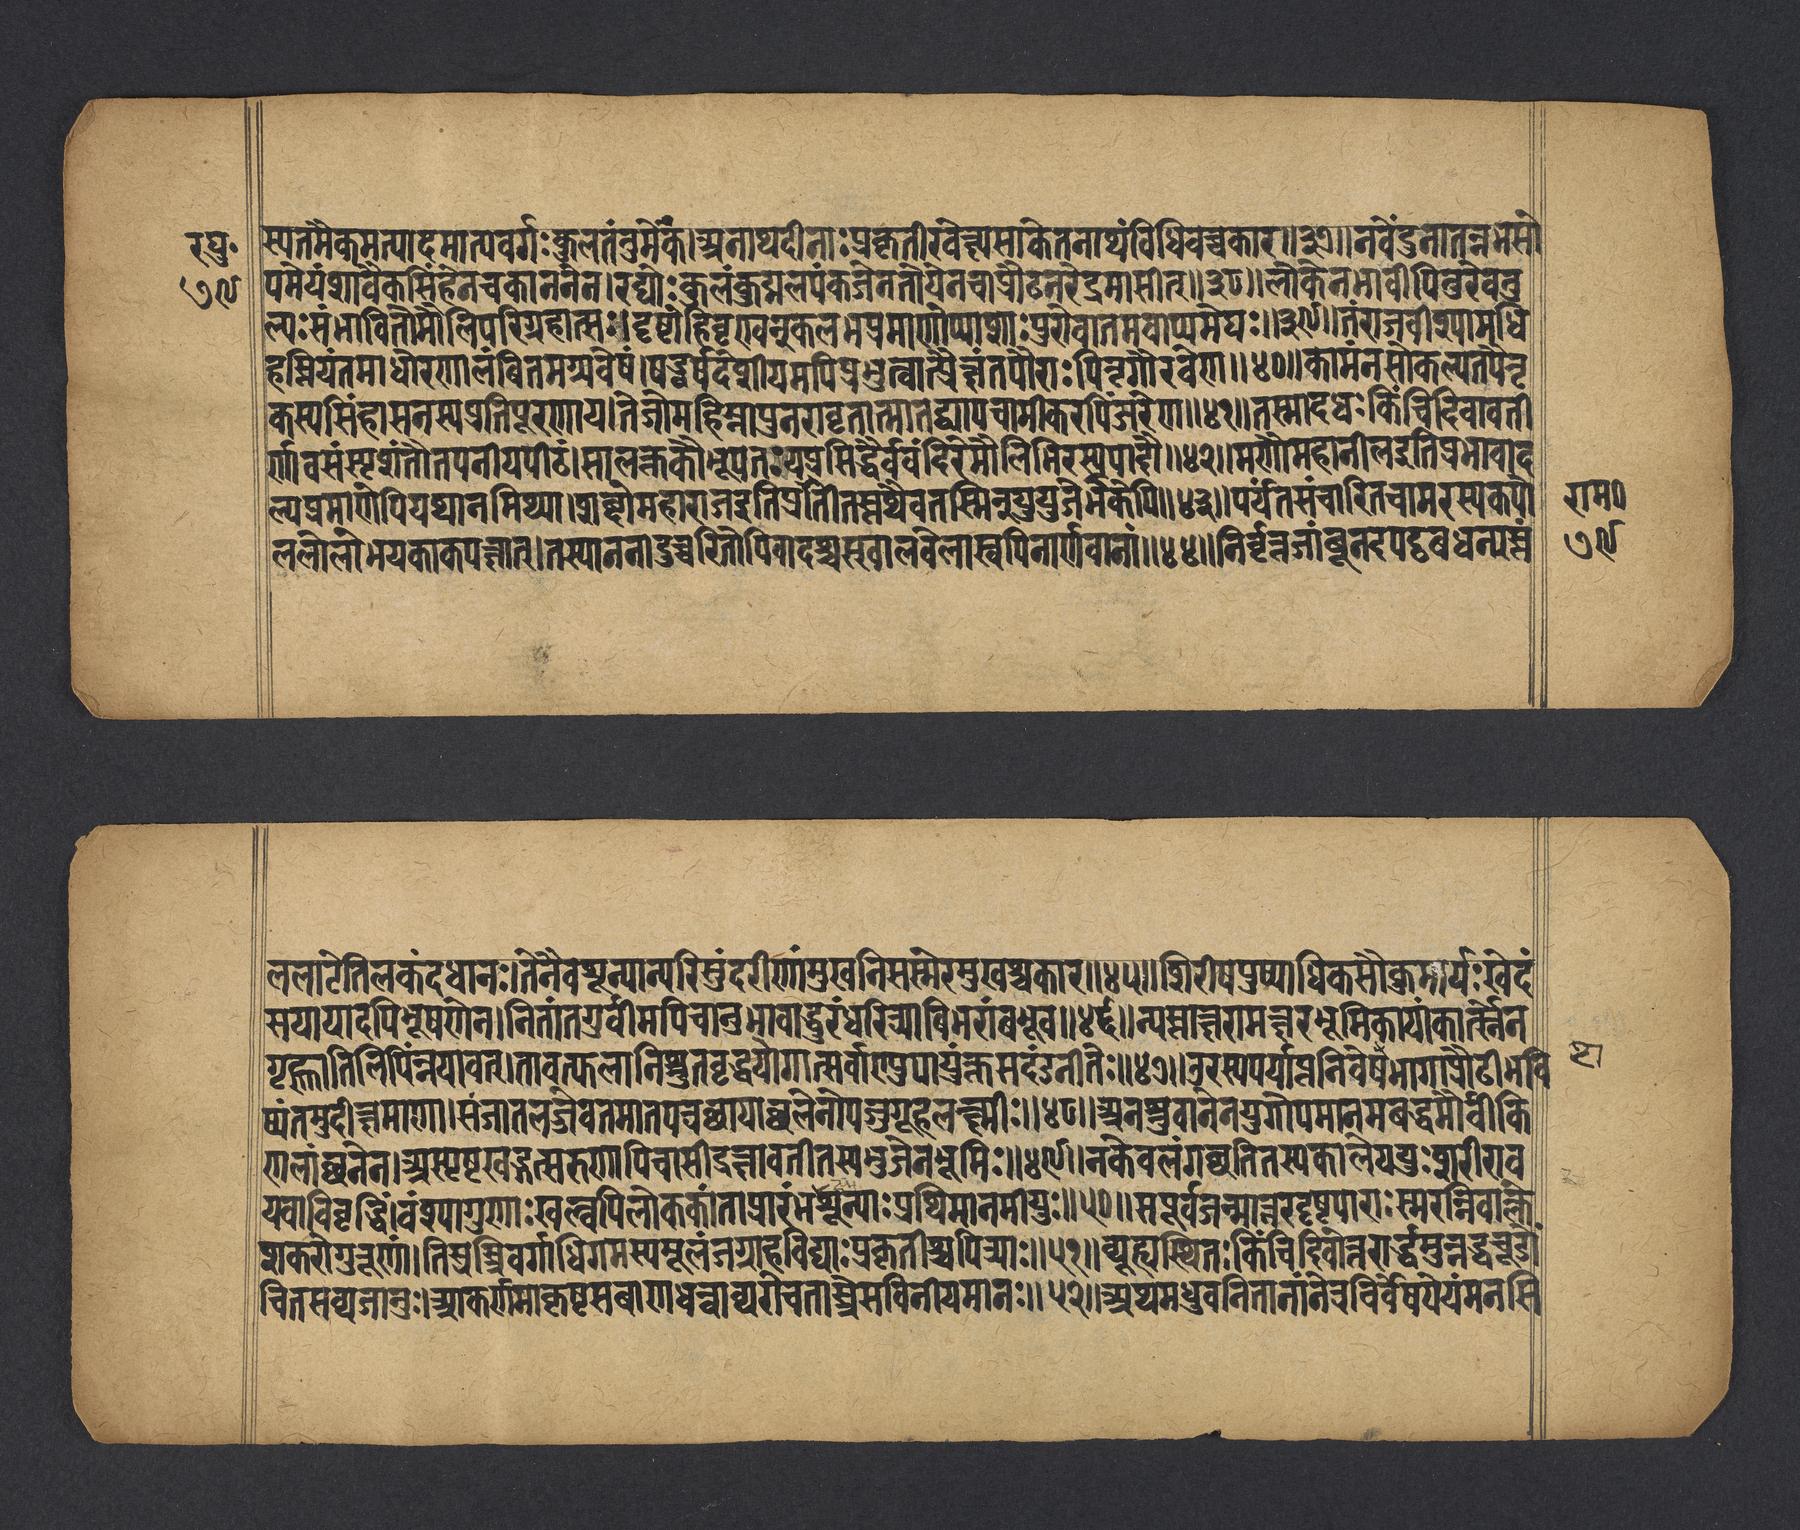 रघु॰
७९
स्यतमैकमत्यादमात्यवर्गः कुलतंतुमेकं।अनाथदीनाः प्रकृतीरवेक्ष्यसाकेतनाथंविधिवच्चकार॥३७॥नवेंदुनातन्नभसो
पमेयंशावैकसिंहेनचकाननेन।रघोः कुलंकुद्मलपंकजेनतोयेनचाप्रौढनरेंद्रमासीत्॥३८॥लोकेनभावीपितुरेवतु
ल्यः संभावितोमौलिपरिग्रहात्सः।दृष्टोहिवृण्वन्कलभप्रमाणोप्याशाः पुरोवातमवाप्यमेघः॥३९॥तंराजवीथ्यामधि
हस्तियंतमाधोरणालंबितमग्र्यवेषं।षड्वर्षदेशीयमपिप्रभुत्वात्प्रैक्षंतपौराः पितृगौरवेण॥४०॥कामंनसोकल्पतपैतृ
कस्यसिंहासनस्यप्रतिपूरणाय।तेजोमहिम्नापुनरावृतात्मातद्व्यापचामीकरपिंजरेण॥४१॥तस्मादधः किंचिदिवावती
र्णावसंस्पृशंतौतपनीयपीठं।सालक्तकौभूपतयः प्रसिद्धैर्ववंदिरेमौलिभिरस्यपादौ॥४२॥मणौमहानीलइतिप्रभावाद
ल्पप्रमाणेपियथानमिथ्या।शब्दोमहाराजइतिप्रतीतस्तथैवतस्मिन्युयुजेर्भकेपि॥४३॥पर्यंतसंचारितचामरस्यकपो
ललोलोभयकाकपक्षात्।तस्याननादुच्चरितोपिवादश्चस्खालवेलास्वपिनार्णवानां॥४४॥निर्वृत्तजांबूनदपट्टबंधेन्यस्तं
राम०
७९
ललाटेतिलकंदधानः।तेनैवशून्यान्यरिसुंदरीणांमुखानिसस्मेरमुखश्चकार॥४५॥शिरीषपुष्पाधिकसौकुमार्यः खेदं
सयायादपिभूषणेन।नितांतगुर्वीमपिचानुभावाद्धुरंधरित्र्याबिभरांबभूव॥४६॥न्यस्ताक्षरामक्षरभूमिकायांकार्त्स्नेन
गृह्णातिलिपिंनयावत्।तावत्फलानिश्रुतवृद्धयोगात्सर्वाण्युपायुंक्तसदंडनीतेः॥४७॥उरस्यपर्याप्तनिवेषभागाप्रौढीभवि
ष्यंतमुदीक्षमाणा।संजातलज्जेवतमातपत्रच्छायाच्छलेनोपजुगूहलक्ष्मीः॥४८॥अनश्नुवानेनयुगोपमानमबद्धमौर्वीकि
णलांछनेन।अस्पृष्टखड्गत्सरुणापिचासीद्रक्षावतीतस्यभुजेनभूमिः॥४९॥नकेवलंगच्छतितस्यकालेययुः शरीराव
यवाविवृद्धिं।वंश्यागुणाः खल्वपिलोककांताप्रारंभशून्याः प्रथिमानमीयुः॥५०॥सपूर्वजन्मांतरदृष्टपाराः स्मरन्निवाक्ले
शकरोगुरूणां।तिस्रस्त्रिवर्गाधिगमस्यमूलंजग्राहविद्याः प्रकृतीश्चपित्र्याः॥५१॥व्यूह्यस्थितः किंचिदिवोत्तरार्द्धमुन्नद्धचूडो
चितसव्यजानुः।आकर्णमाकृष्टसबाणधन्वाव्यरोचतास्त्रैसविनीयमानः॥५२॥अथमधुवनितानांनेत्रविर्वेषयेयंमनसि